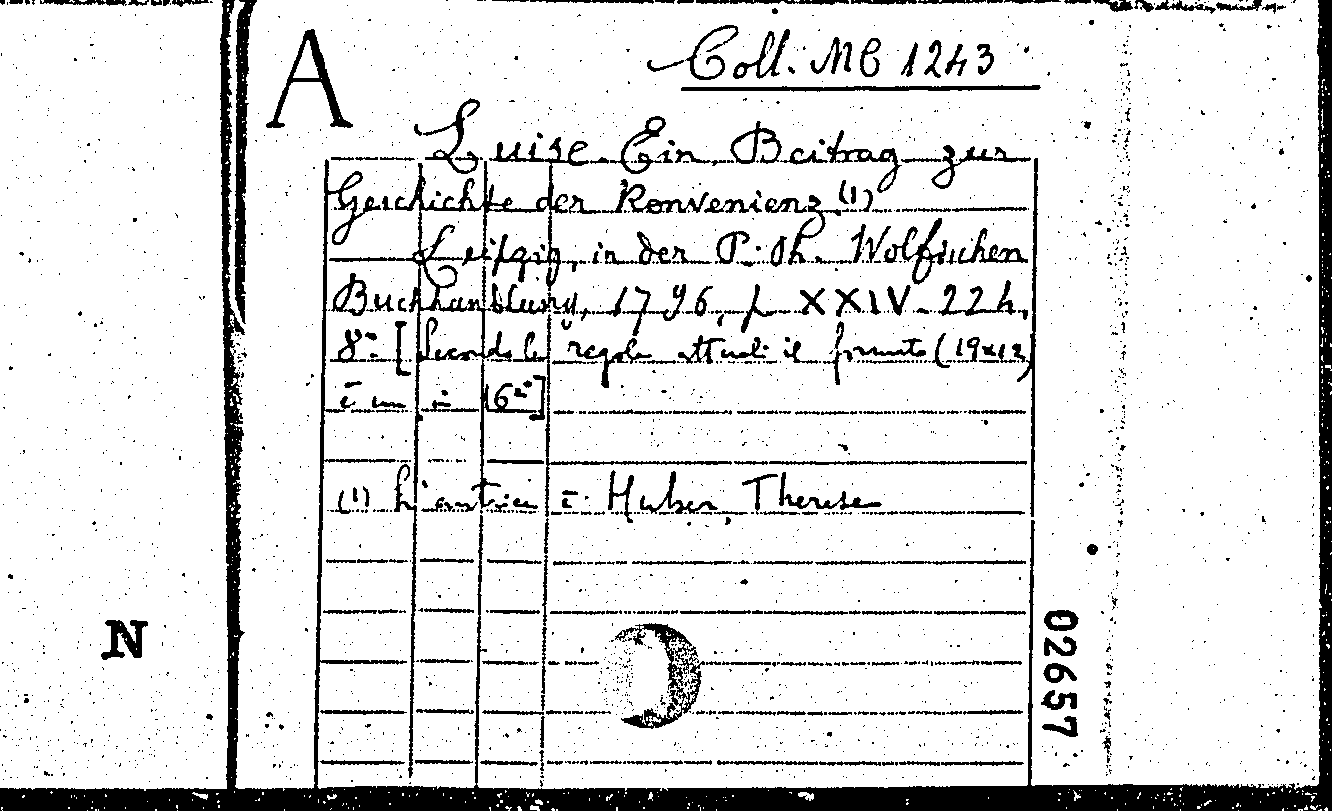 A
Coll. MC 1243
Luise. Ein Beitrag zur
Geschichte der Konvenienz. (1)
Leipzig, in der P. Ph. Wolfischen
Buchhandlung, 1796, p. XXIV - 224.
8° [Secondo le regole attuali il formato (19x12)
è un in 16°]
(1) L'autrice è: Huber, Therese
N
02657